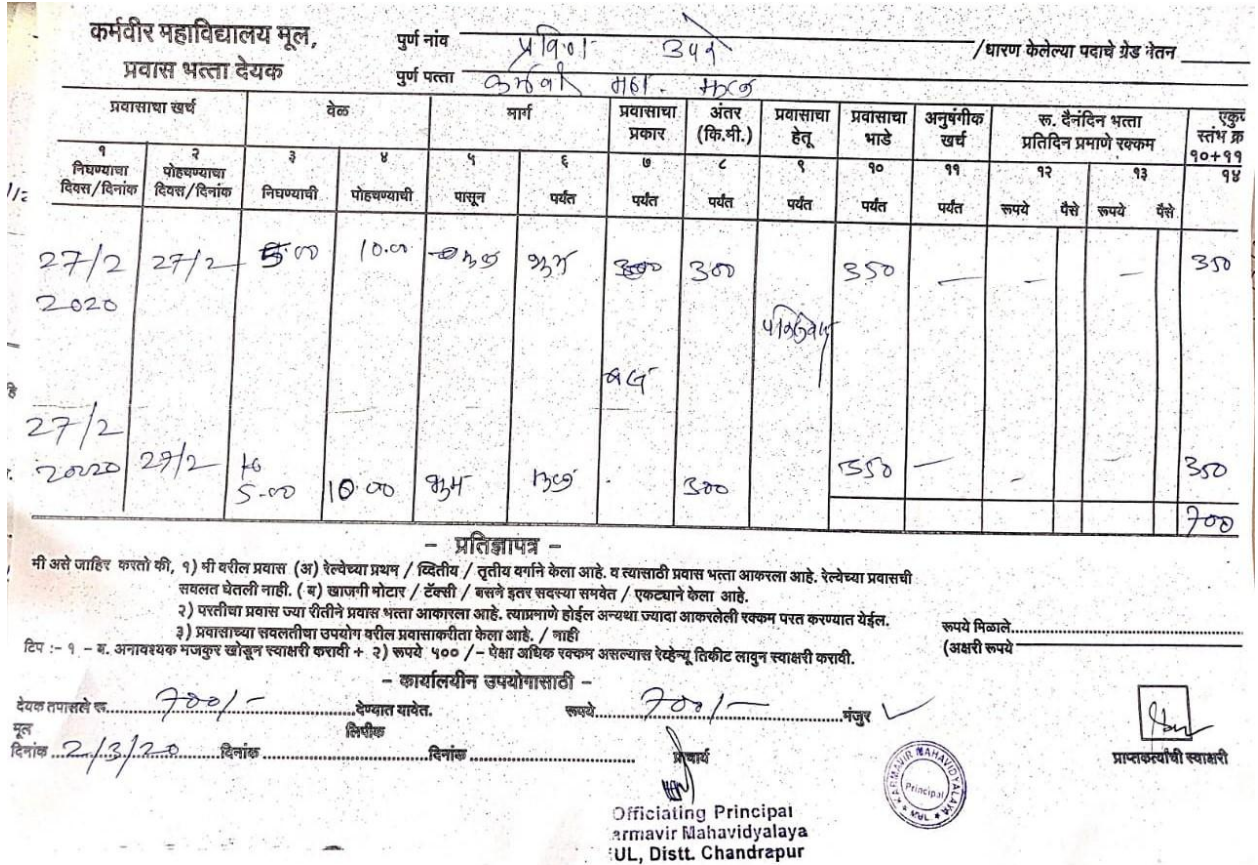 कर्मवीर महाविद्यालय मूल,
प्रवास भत्ता देयक
पुर्ण नांव प्रविण उपरे /धारण केलेल्या पदाचे ग्रेड वेतन
पुर्ण पत्ता कर्मवीर महा. मूल
प्रवासाचा खर्च वेळ मार्ग प्रवासाचा प्रकार अंतर (कि.मी.) प्रवासाचा हेतू प्रवासाचा भाडे अनुषंगीक खर्च रू. दैनंदिन भत्ता प्रतिदिन प्रमाणे रक्कम स्तंभ क्र १०+११
१ २ ३ ४ ५ ६ ७ ८ ९ १० ११ १२ १३ १४
निघण्याचा दिवस/दिनांक पोहचण्याचा दिवस/दिनांक निघण्याची पोहचण्याची पासून पर्यंत पर्यंत पर्यंत पर्यंत पर्यंत पर्यंत रूपये पैसे रूपये पैसे
27/2 2020 27/2 5.00 10.00 300 350 — — — 350
बस
27/2 2020 27/2 5.00 10.00 मूल 300 350 — - 350
700
– प्रतिज्ञापत्र –
मी असे जाहिर करतो की, १) मी वरील प्रवास (अ) रेल्वेच्या प्रथम / व्दितीय / तृतीय वर्गाने केला आहे. व त्यासाठी प्रवास भत्ता आकरला आहे. रेल्वेच्या प्रवासची
सवलत घेतली नाही. ( ब) खाजगी मोटार / टॅक्सी / बसने इतर सदस्या समवेत / एकट्याने केला आहे.
२) परतीचा प्रवास ज्या रीतीने प्रवास भत्ता आकारला आहे. त्याप्रमाणे होईल अन्यथा ज्यादा आकरलेली रक्कम परत करण्यात येईल.
३) प्रवासाच्या सवलतीचा उपयोग वरील प्रवासाकरीता केला आहे. / नाही
रूपये मिळाले
टिप :- १ – ब. अनावश्यक मजकुर खोडून स्वाक्षरी करावी + २) रूपये ५०० /– पेक्षा अधिक रक्कम असल्यास रेव्हेन्यू तिकीट लावुन स्वाक्षरी करावी.
(अक्षरी रूपये
– कार्यालयीन उपयोगासाठी –
देयक तपासले रू. 700/- देण्यात यावेत. रूपये 700/- मंजुर
मूल लिपीक
दिनांक 2/3/20 दिनांक दिनांक प्राचार्य प्राप्तकर्त्याची स्वाक्षरी
KARMAVIR MAHAVIDYALAYA
Principal
MUL
Officiating Principal
armavir Mahavidyalaya
UL, Distt. Chandrapur